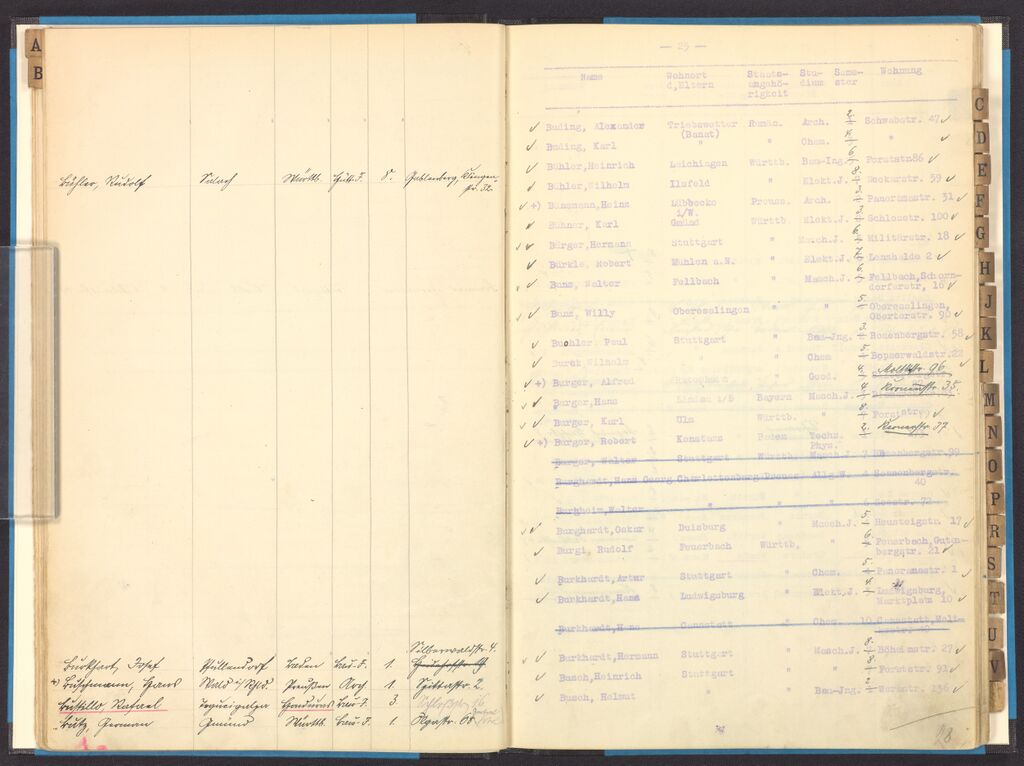 A
B
Bühler, Rudolf Salach Württb. 8. Gablenberg, Klingen-
str. 32.
Silberwaldstr. 4.
Burkhart, Josef Pfullendorf Baden Bau-I. 1.
+) Buschmann, Hans Wald i/Rhld. Preußen Arch. 1. Spittastr. 2.
Bustillo Rafael Tegucigalpa Honduras Bau-I. 3
Butz, German Gmünd Württb. Bau-I. 1 Olgastr. 68
— 25 —
Name Wohnort Staats- Stu- Seme- Wohnung
d.Eltern angehö- dium ster
rigkeit
Buding, Alexander Triebswetter Rumän. Arch. 2 Schwabstr. 47
(Banat)
Buding, Karl " " Chem. "
Bühler, Heinrich Laichingen Württb. Bau-Ing. 6 Forststr.86
Bühler, Wilhelm Ilsfeld " Elekt.J. 8 Neckarstr. 59
+) Bünemann, Heinz Lübbecke Preuss. Arch. 3 Panoramastr. 31
i/W.
Bühner, Karl Gmünd Württb. Elekt.J. 3 Schlosstr. 100
Bürger, Hermann Stuttgart " Masch.J. 6 Militärstr. 18
Bürkle, Robert Mühlen a.N. " Elekt.J. Lenzhalde 2
Bunz, Walter Fellbach " Masch.J. 6 Fellbach, Schorn-
dorferstr, 16
Bunz, Willy Oberesslingen " " 5 Oberesslingen,
90
Buohler, Paul Stuttgart " Bau-Ing. 3 Rosenbergstr. 58
Burck, Wilhelm " " Chem 5 Bopserwaldstr. 22
+) Burger, Alfred " Geod. 4. Moltkestr. 96
Burger, Hans Lindau i/B Bayern Masch.J. 4 Kornerstr. 35.
Burger, Karl Ulm Württb. " 8. Forststr.
+) Burger, Robert Konstanz Baden Techn. 2. Kernerstr. 37
Phys.
Burger, Walter Stuttgart Württb. Masch.J. 7 99
Burghardt, Hans Georg Charlottenburg Preuss Allg.W. 4 Sonnenbergstr.
40
Burgheim, Walter " " " Seestr. 72
Burghardt, Oskar Duisburg " Masch.J. 5 Heusteigstr. 17
Burgi, Rudolf Feuerbach Württb, " 6 Feuerbach, Guten-
bergstr. 21
Burkhardt, Artur Stuttgart " Chem. 5 Panoramastr. 1
Burkhardt, Hans Ludwigsburg " Elekt.J. 4 Ludwigsburg,
Marktplatz 10
Burkhardt, Hans Cannstatt " Chem. 10 Cannstatt,
Burkhardt, Hermann Stuttgart " Masch.J. 8 Böheimstr. 27
Busch, Heinrich Stuttgart " " 8 Forststr. 92
Busch, Helmut " " Bau-Ing. 2 136
28
C
D
E
F
G
H
J
K
L
M
N
O
P
R
S
T
U
V